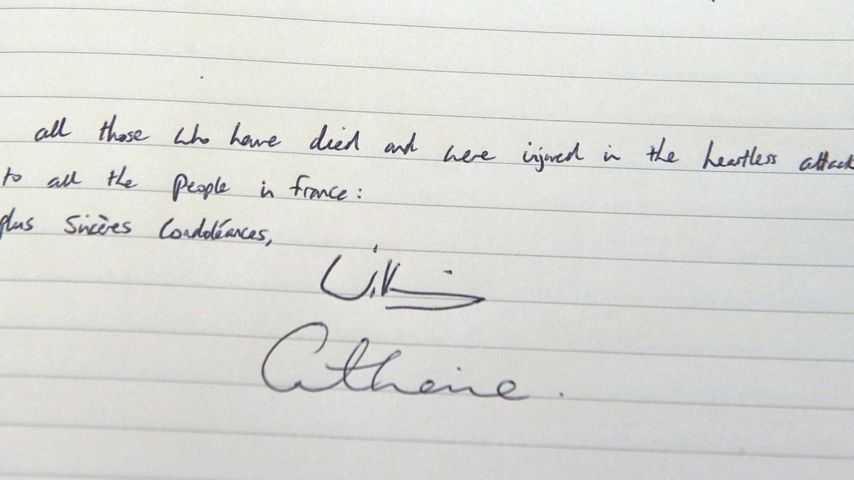 all those who have died and were injured in the heartless attack
to all the people in france:
plus Sincères Condoléances,
Catherine.